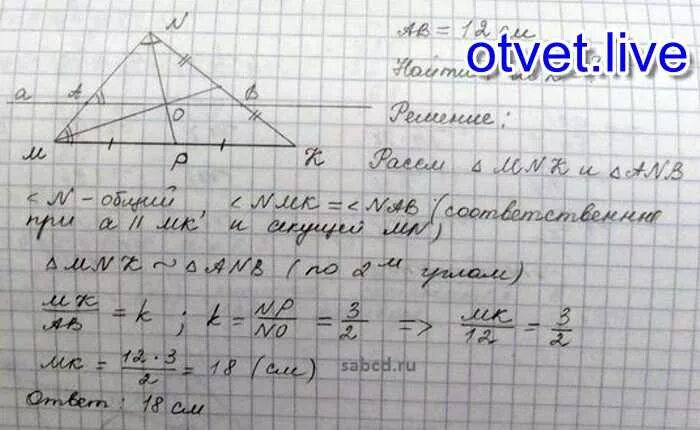 N
AB = 12 см
otvet.live
Найти
a A B
O
Решение:
M P K
Рассм △ MNK и △ANB
∠N - общий ∠NMK = ∠NAB (соответственно
при a || MK и секущей MN)
△MNK ~ △ANB (по 2м углам)
MK/AB = k ; k = NP/NO = 3/2 => MK/12 = 3/2
MK = 12·3/2 = 18 (см) sabcd.ru
Ответ: 18 см